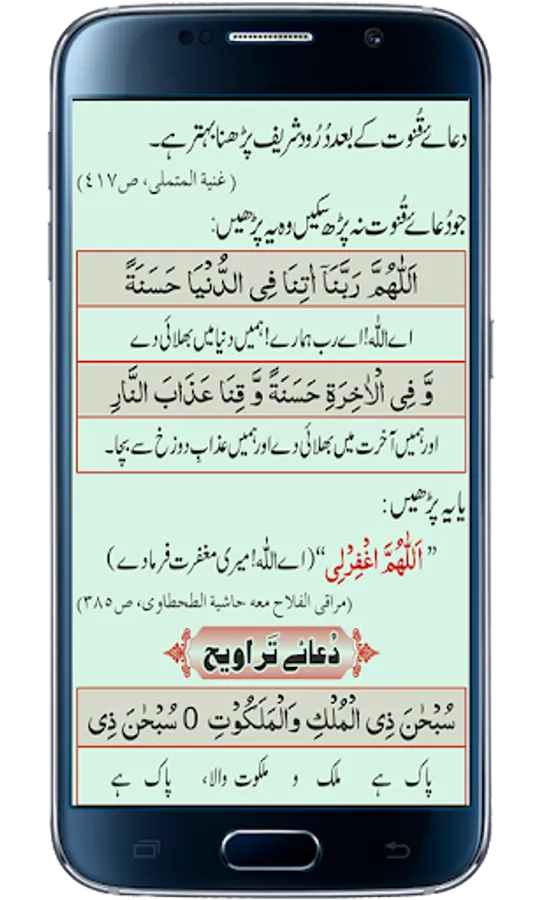 دعائے قُنوت کے بعد دُرُود شریف پڑھنا بہتر ہے۔
(غنیة المتملی، ص٤١٧)
جو دُعائے قُنوت نہ پڑھ سکیں وہ یہ پڑھیں:
اَللّٰهُمَّ رَبَّنَاۤ اٰتِنَا فِی الدُّنْیَا حَسَنَةً
اے اللہ! اے رب ہمارے! ہمیں دنیا میں بھلائی دے
وَّ فِی الْاٰخِرَةِ حَسَنَةً وَّ قِنَا عَذَابَ النَّارِ
اور ہمیں آخرت میں بھلائی دے اور ہمیں عذابِ دوزخ سے بچا۔
یا یہ پڑھیں:
”اَللّٰهُمَّ اغْفِرْلِی“ (اے اللہ! میری مغفرت فرما دے)
(مراقی الفلاح معه حاشیة الطحطاوی، ص٣٨٥)
دُعائے تَراویح
سُبْحٰنَ ذِی الْمُلْكِ وَالْمَلَكُوْتِ 0 سُبْحٰنَ ذِی
پاک ہے ملک و ملکوت والا، پاک ہے